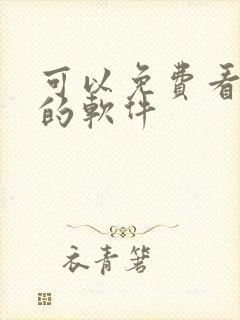 可以免費看
的軟件
衣青箬